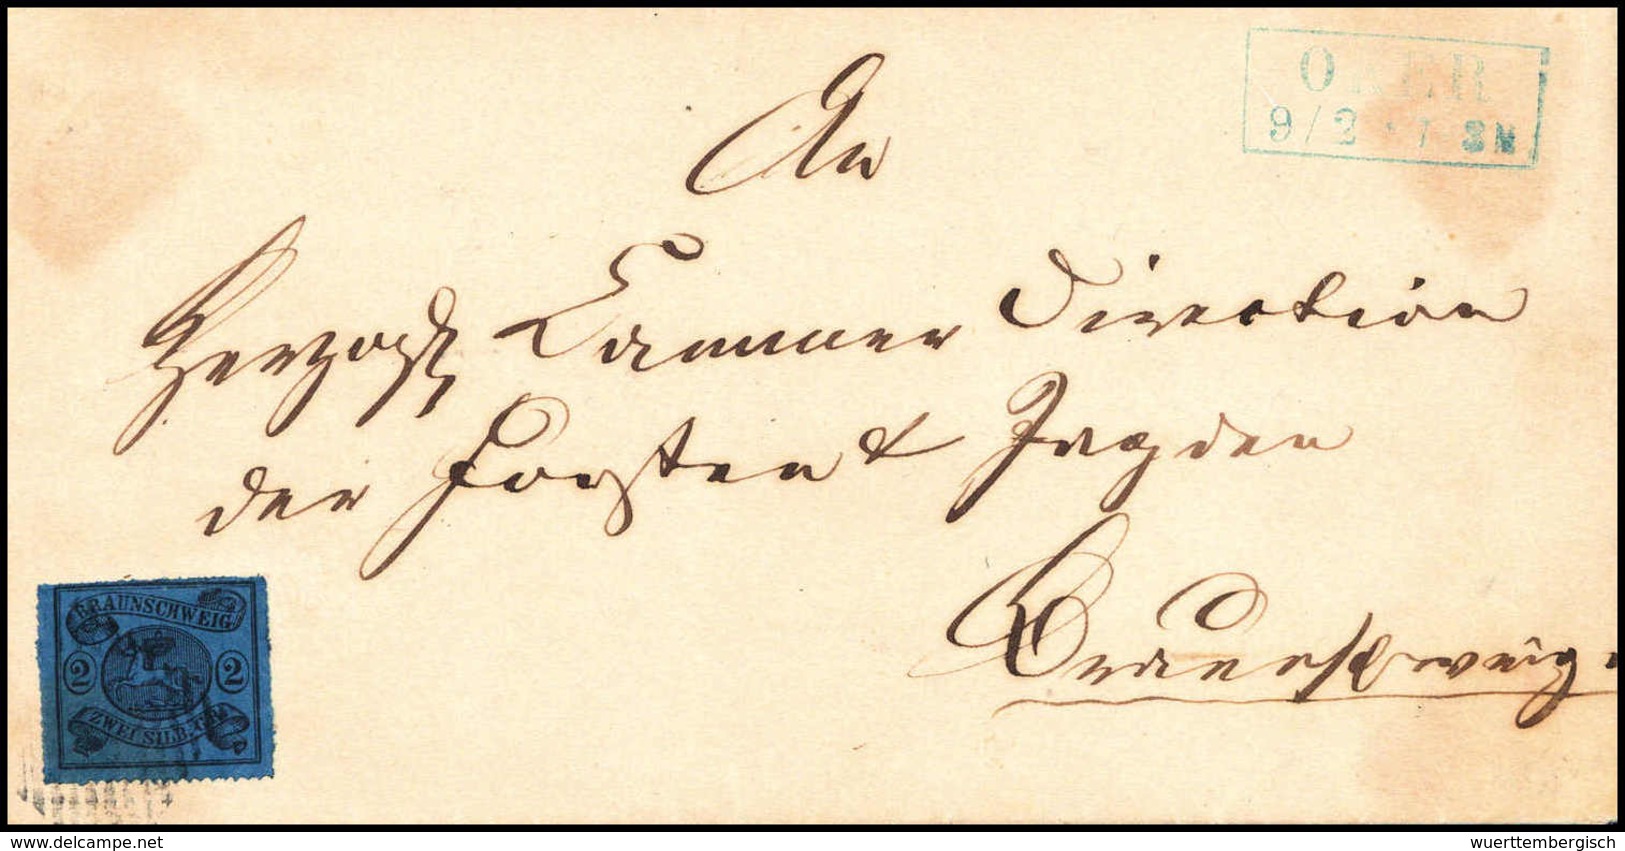 OKER
9/2 · 7 - 8 N
An
Herzogl. Cammer Direction
der Forsten & Jagden
Braunschweig.
BRAUNSCHWEIG
2 2
ZWEI SILB. GR.
delcampe.net
wuerttembergisch